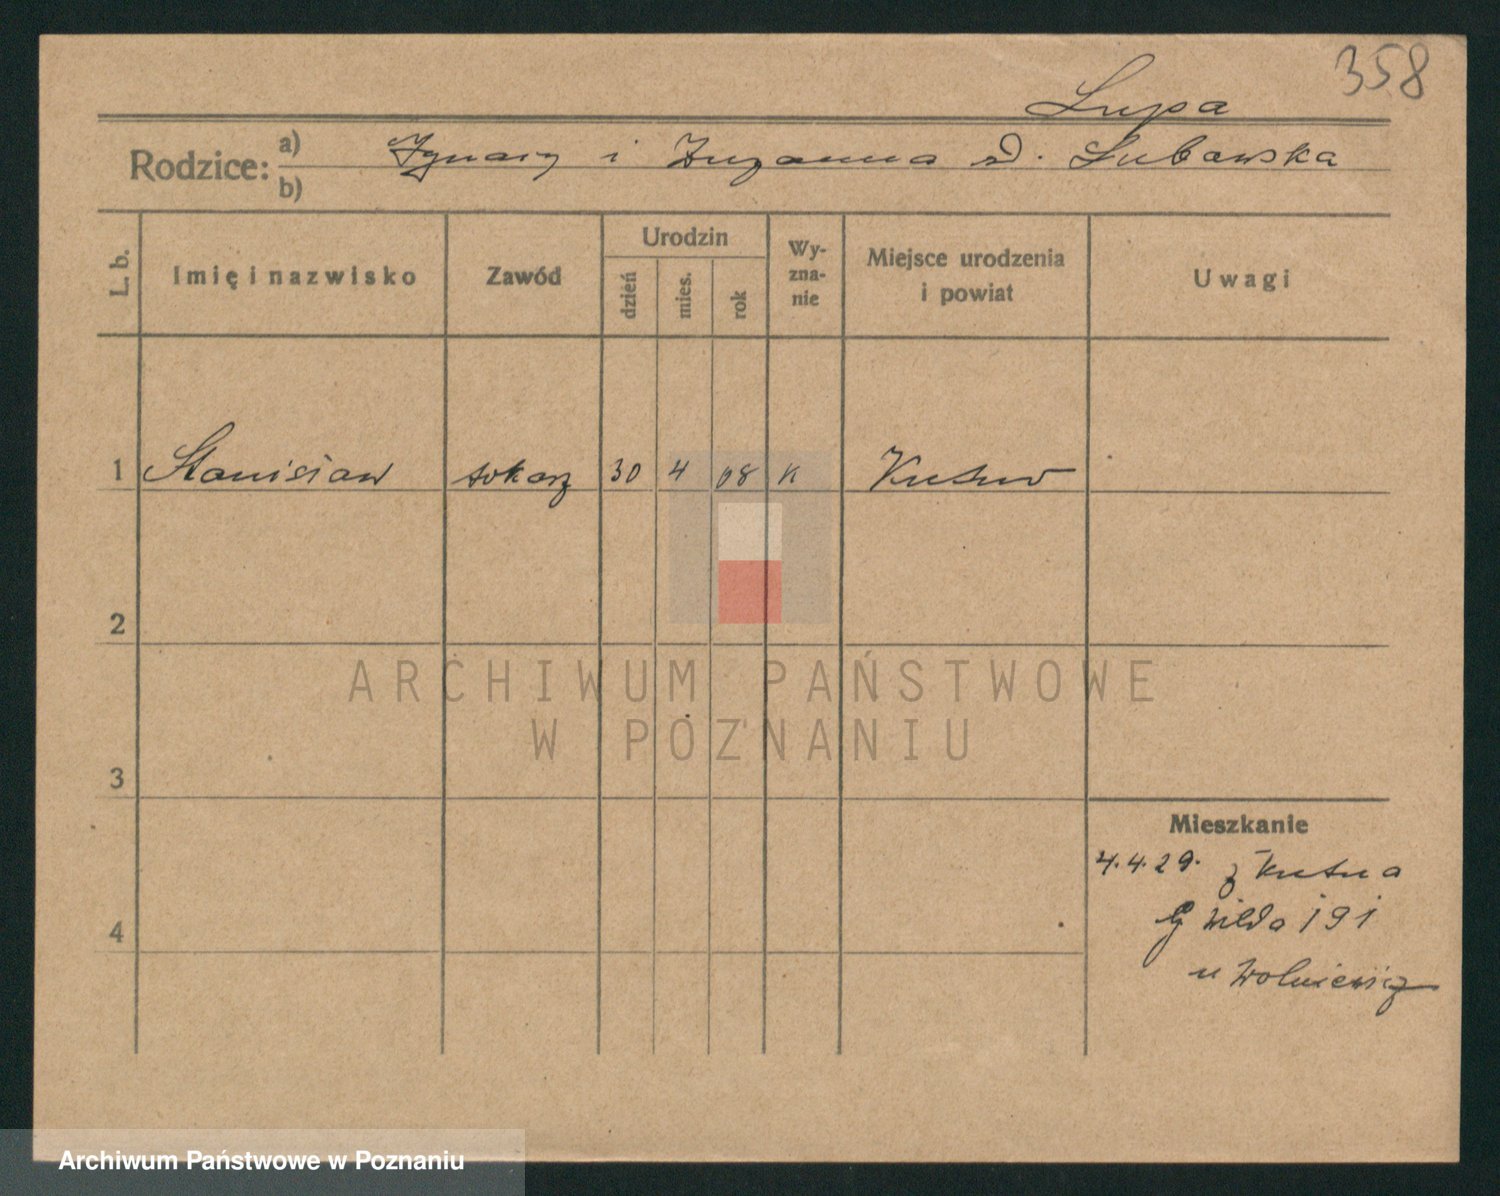 358
Lupa
Rodzice: a) Ignacy i Zuzanna d. Lubawska
b)
L. b. Imię i nazwisko Zawód Urodzin dzień mies. rok Wy-zna-nie Miejsce urodzenia i powiat Uwagi
1 Stanisław tokarz 30 4 08 K Kutno
2
ARCHIWUM PAŃSTWOWE
W POZNANIU
3
Mieszkanie
4.4.29. z Kutna
G Wilda 191
4
u Wolniewicz
Archiwum Państwowe w Poznaniu